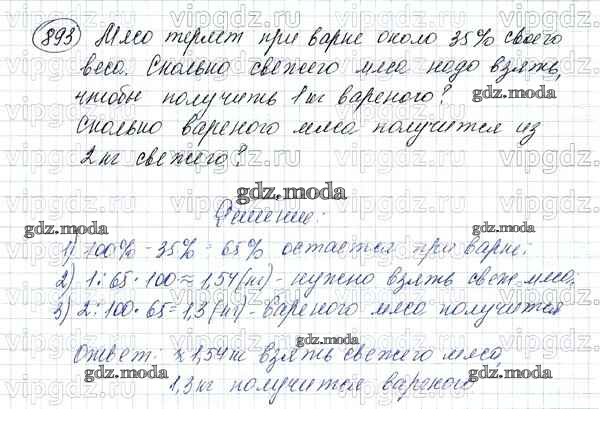 893 Мясо теряет при варке около 35% своего
веса. Сколько свежего мяса надо взять,
чтобы получить 1 кг вареного?
Сколько вареного мяса получится из
2 кг свежего?
gdz.moda
gdz.moda
Решение:
gdz.moda
gdz.moda
1) 100% - 35% = 65% остается при варке;
2) 1:65·100≈1,54(кг) - нужно взять свеж. мяса;
3) 2:100·65=1,3(кг) - вареного мяса получится
gdz.moda
gdz.moda
Ответ: ≈1,54кг взять свежего мяса
gdz.moda
gdz.moda
1,3кг получится вареного
vipgdz.ru